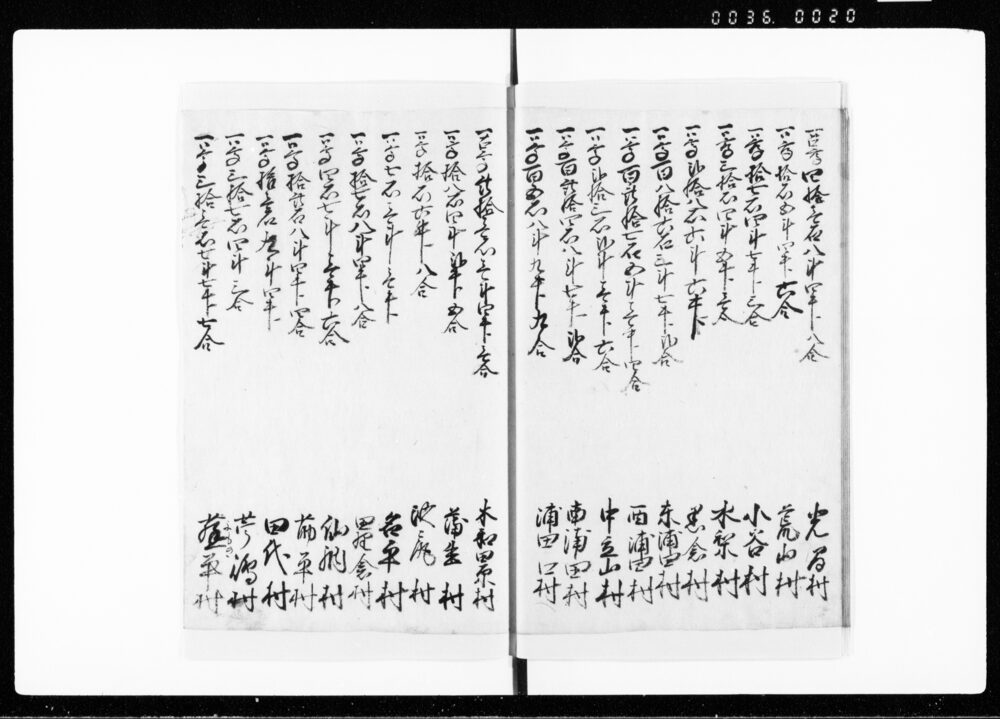 0036. 0020
一高四拾壱石八斗四升八合 光間村
一高拾石五斗四升六合 荒山村
一高拾七石四斗七升三合 小谷村
一高三拾石四斗五升 水梨村
一高弐拾八石六斗六升 黒倉村
一高百八拾六石三斗七升弐合 東浦田村
一高百弐拾七石五斗壱升四合 西浦田村
一高弐拾三石弐斗壱升六合 中立山村
一高百弐拾四石八斗七升弐合 南浦田村
一高百五石八斗九升九合 浦田口村
一高弐拾壱石壱斗四升壱合 木和田原村
一高拾八石四斗弐升五合 蒲生村
一高拾石六升八合 池尻村
一高七石三斗壱升 名平村
一高拾七石八斗四升八合 田麦倉村
一高四石七斗壱升六合 仙納村
一高拾弐石八斗四升四合 莇平村
一高 九斗四升 田代村
一高三拾七石四斗三合 芹沼村
一高三拾壱石七斗七升七合 蓬平村